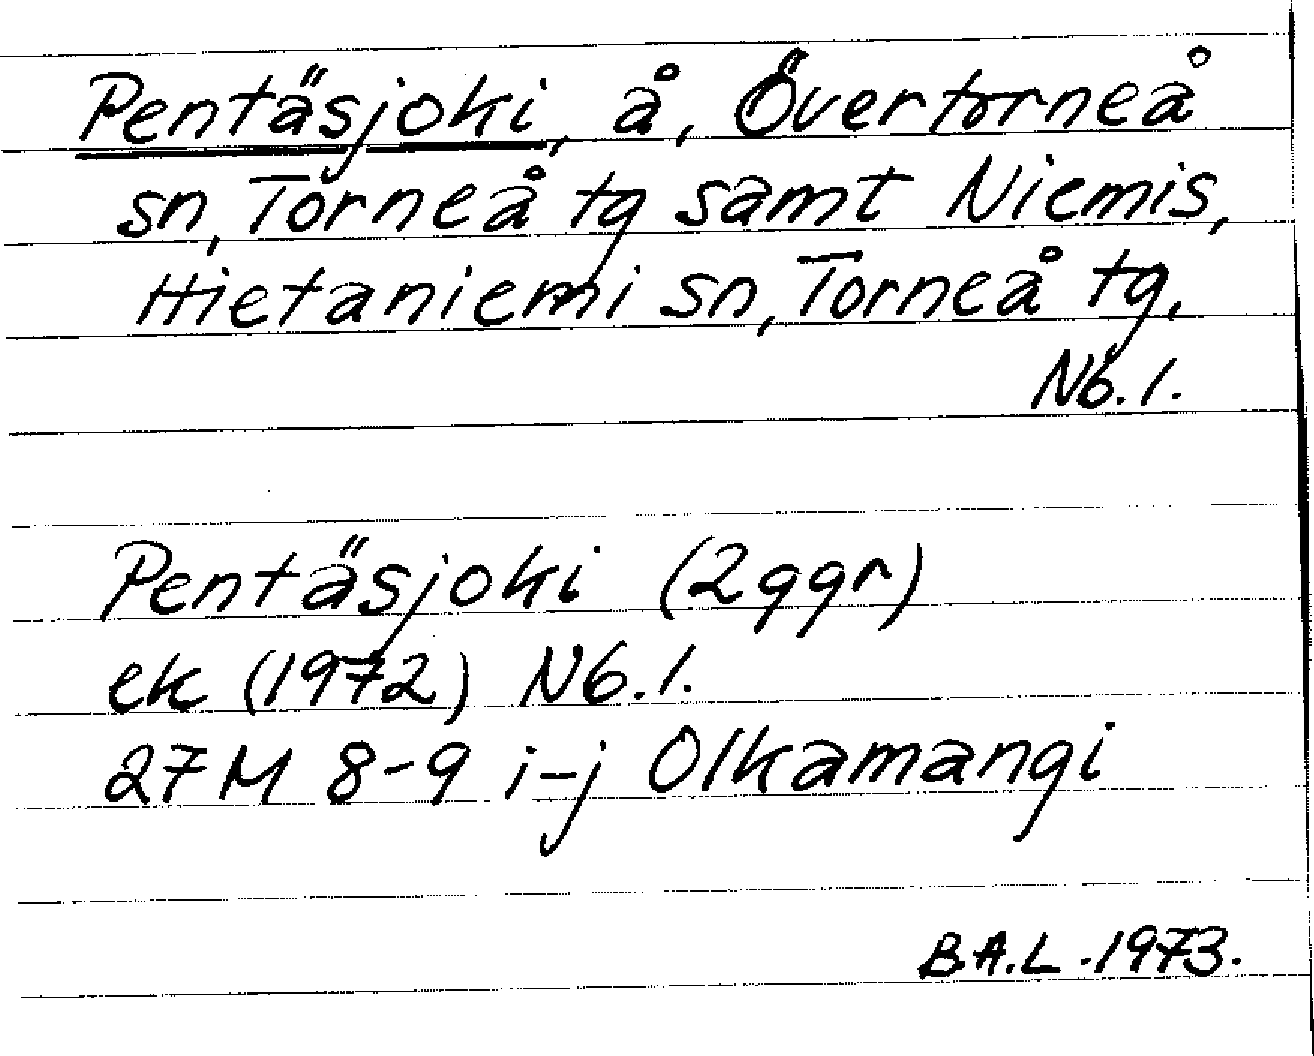 Pentäsjoki, å, Övertorneå
sn, Torneå tg samt Niemis,
Hietaniemi sn, Torneå tg,
Nb. l.
Pentäsjoki (2ggr)
ek (1972) Nb. l.
27M 8-9 i-j Olkamangi
B.A.L. 1973.